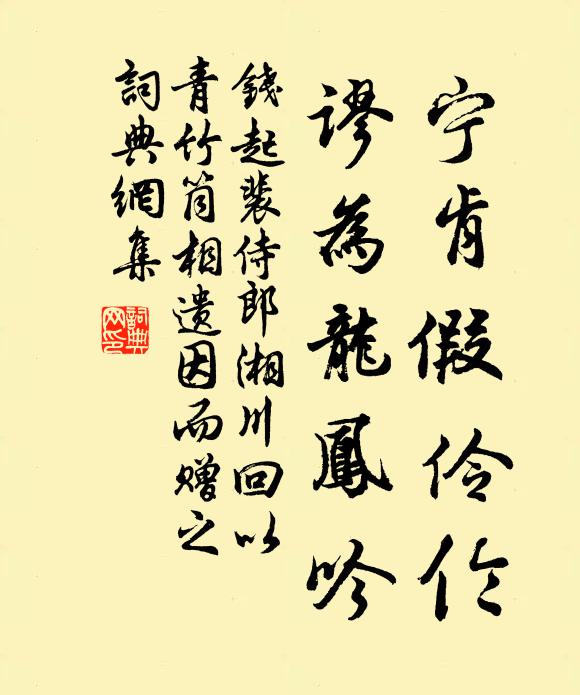 宁肯假伶伦
谬為龍鳳吟
錢起裴侍郎湘川回以
青竹筒相遗因而赠之
詞典網集
詞典网印